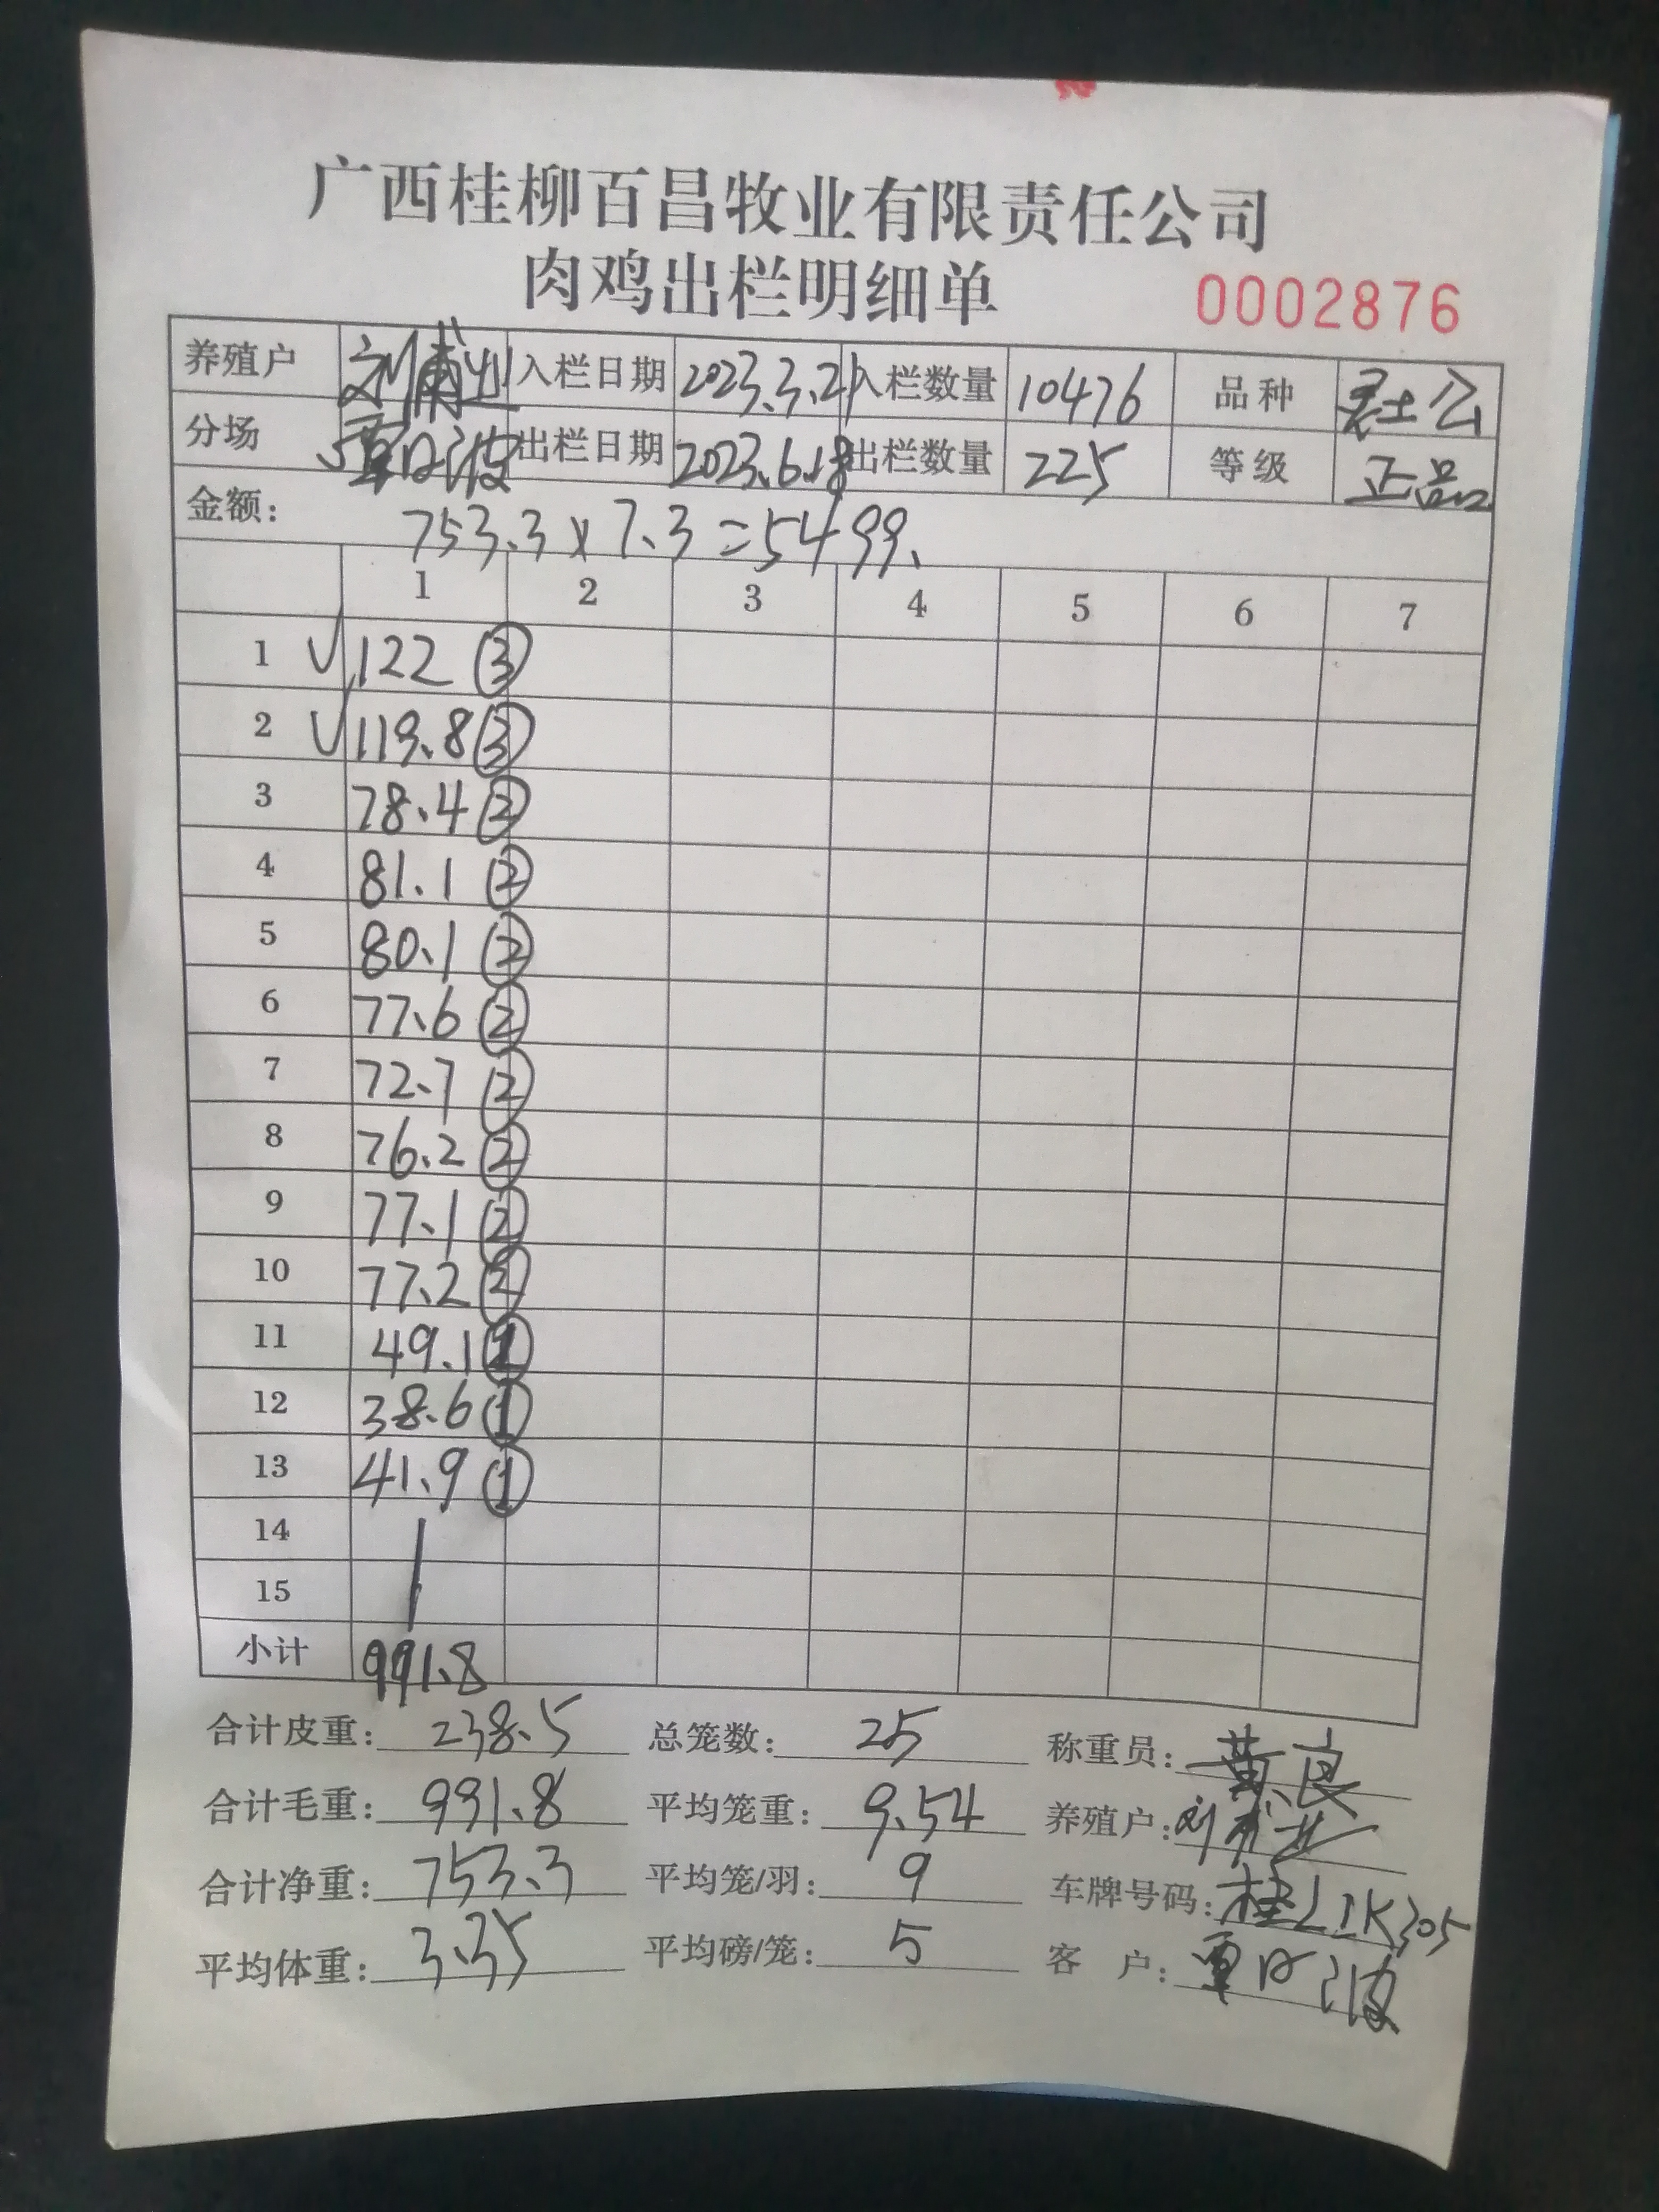 广西桂柳百昌牧业有限责任公司
肉鸡出栏明细单 0002876
养殖户 入栏日期 2023.3.21 入栏数量 10476 品种 土公
分场 覃日波 出栏日期 2023.6.18 出栏数量 225 等级 正品
金额: 753.3 x 7.3 = 5499.
1 2 3 4 5 6 7
1 √ 122 ③
2 √ 119.8 ③
3 78.4 ②
4 81.1 ②
5 80.1 ②
6 77.6 ②
7 72.7 ②
8 76.2 ②
9 77.1 ②
10 77.2 ②
11 49.1 ①
12 38.6 ①
13 41.9 ①
14
15
小计 991.8
合计皮重: 238.5 总笼数: 25 称重员: 黄良
合计毛重: 991.8 平均笼重: 9.54 养殖户:
合计净重: 753.3 平均笼/羽: 9 车牌号码: 桂L1K305
平均体重: 3.35 平均磅/笼: 5 客 户: 覃日波